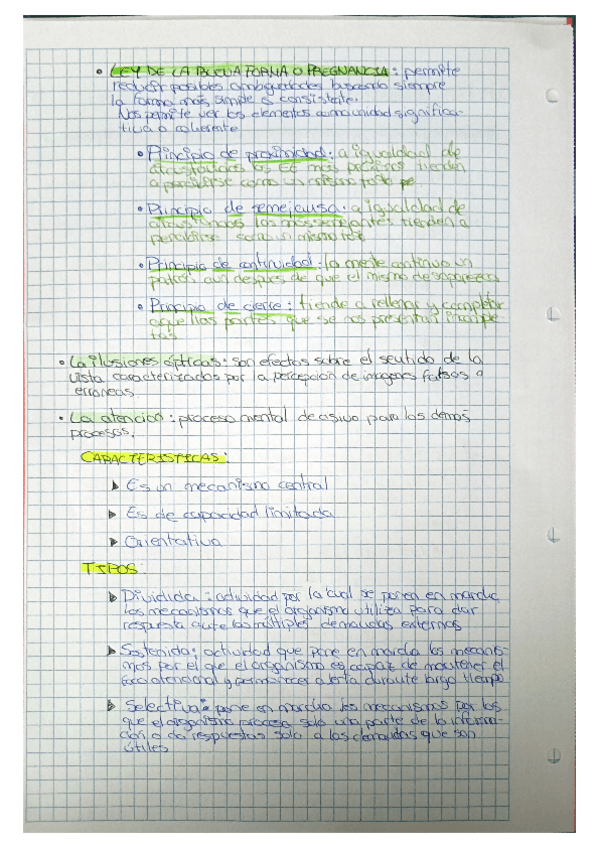 • LEY DE LA BUENA FORMA O PREGNANCIA: permite
reducir posibles ambigüedades buscando siempre
la forma más simple o consistente.
Nos permite ver los elementos como unidad significa-
tiva o coherente
• Principio de proximidad: a igualdad de
los más próximos tienden
a percibirse como un mismo todo
• Principio de semejansa: a igualdad de
los mas semejantes tienden a
percibirse como un mismo
• Principio de continuidad: la mente continua un
patrón aun después de que el mismo desaparezca
• Principio de cierre: tiende a rellenar y completar
aquellas partes que se nos presentan incomple-
tas
• La ilusiones ópticas: son efectos sobre el sentido de la
vista caracterizados por la percepción de imagenes falsas o
erroneas.
• La atención: proceso mental decisivo para los demás
procesos.
CARACTERISTICAS:
Es un mecanismo central
Es de capacidad limitada
Orientativa
TIPOS:
Dividida: actividad por la cual se ponen en marcha
los mecanismos que el organismo utiliza para dar
respuesta ante las múltiples demandas externas
Sostenida: actividad que pone en marcha los mecanis-
mos por el que el organismo es capaz de mantener el
foco atencional y permanecer alerta durante largo tiempo
Selectiva: pone en marcha los mecanismos por los
que el organismo procesa solo una parte de la informa-
ción o da respuestas solo a las demandas que son
útiles